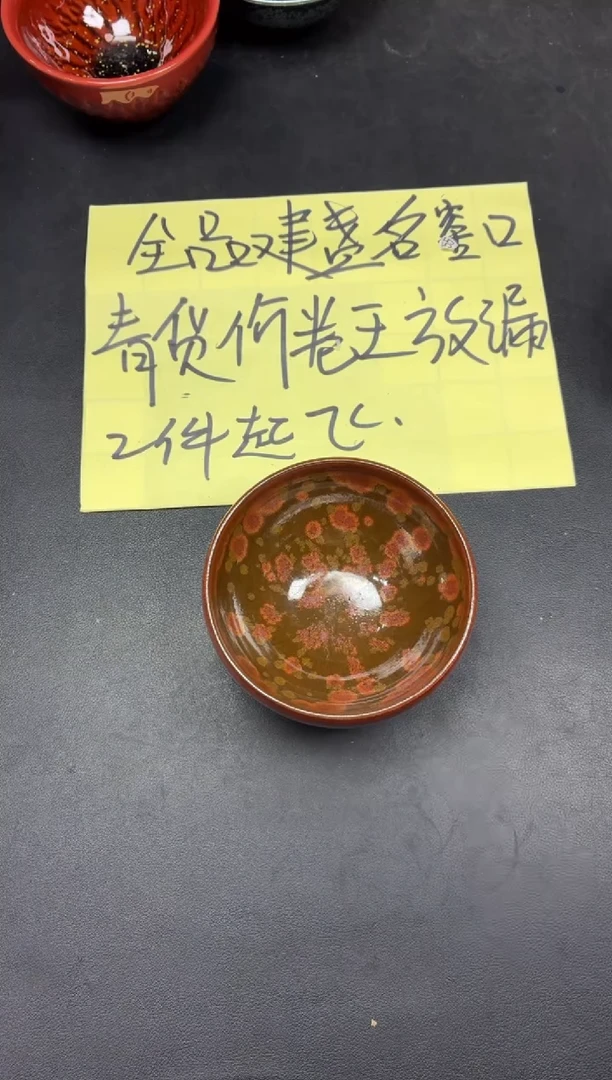 全品建盏名窑口
清货价卷王放漏
2件起飞.